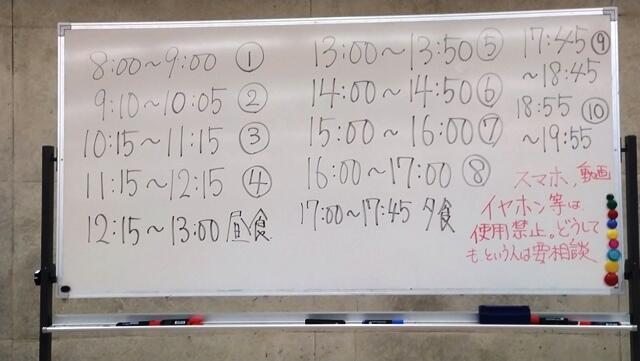 8:00～9:00 ①
9:10～10:05 ②
10:15～11:15 ③
11:15～12:15 ④
12:15～13:00 昼食
13:00～13:50 ⑤
14:00～14:50 ⑥
15:00～16:00 ⑦
16:00～17:00 ⑧
17:00～17:45 夕食
17:45 ⑨
～18:45
18:55 ⑩
～19:55
スマホ、動画
イヤホン等は
使用禁止。どうして
もという人は要相談